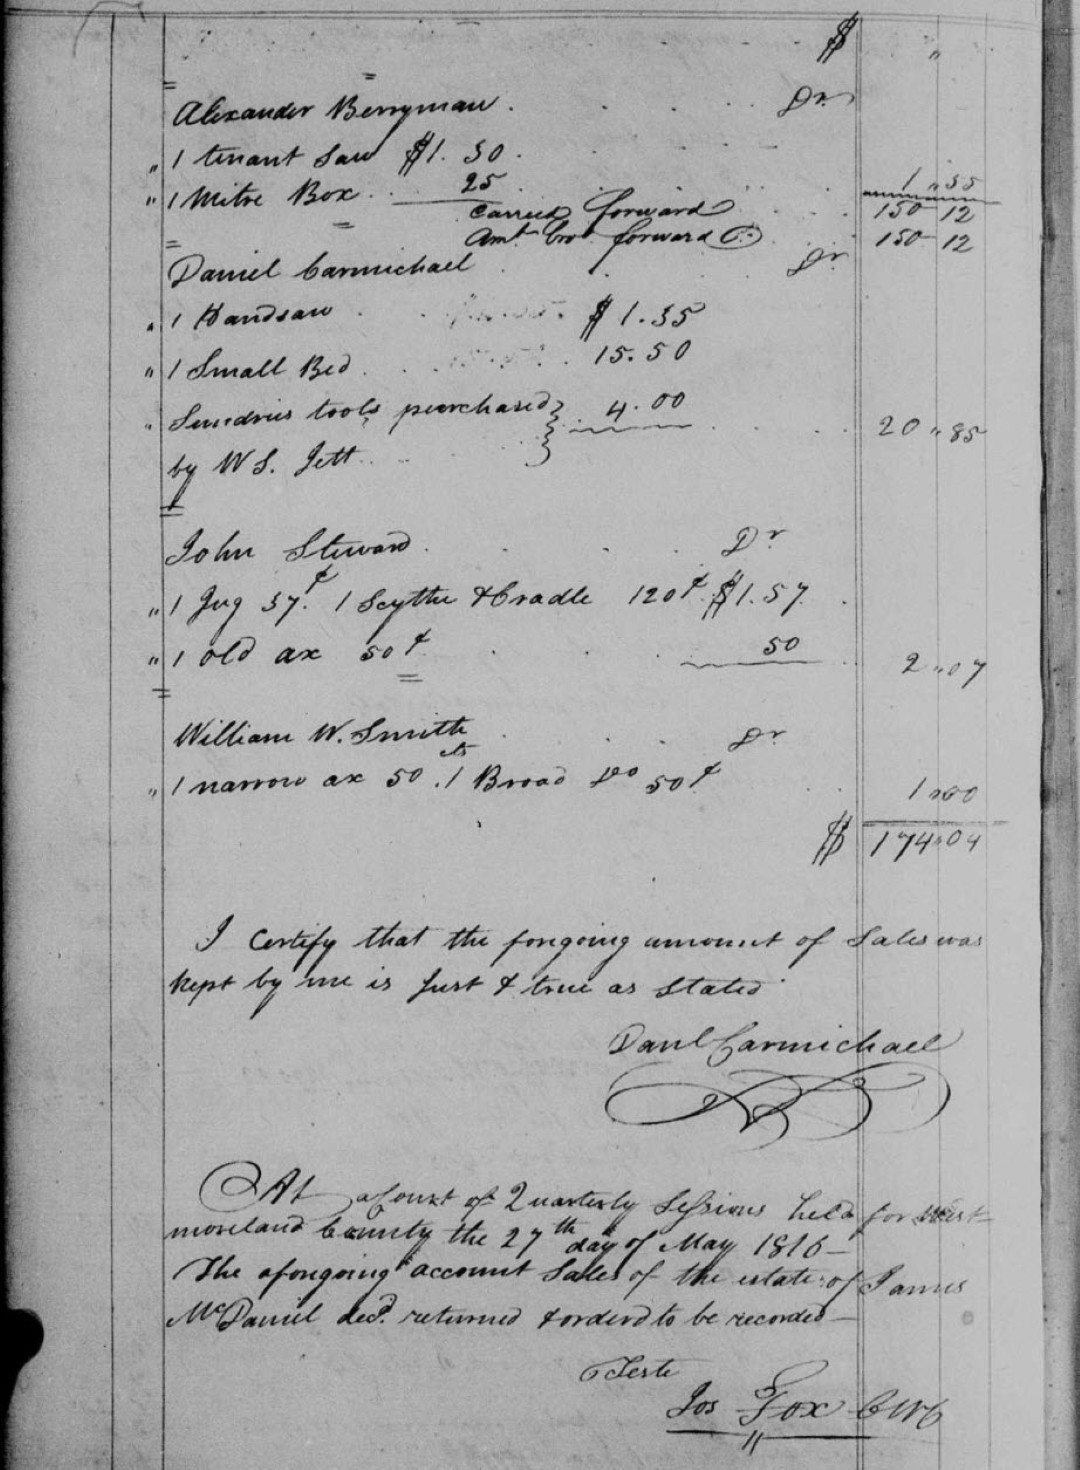 $ "
Alexander Berryman . Dr
" 1 tenant Saw $1. 30.
" 1 Mitre Box 25 1 " 55
Carried forward 150 12
Amt bro forward 150 12
Daniel Carmichael Dr
" 1 Handsaw $1.35
" 1 Small Bed 15.50
" Sundries tools purchased } 4.00 20 " 85
by W S. Jett
John Steward Dr
" 1 Jug 37¢. 1 Scythe & Cradle 120¢ $1.57
" 1 old ax 50¢ 50 2 " 07
William W. Smith Dr
" 1 narrow ax 50 cts. 1 Broad Do 50¢ 1 " 00
$ 174 " 04
I Certify that the forgoing amount of Sales was
kept by me is Just & true as Stated
Danl Carmichael
At a Court of Quarterly Sessions held for West-
moreland County the 27th day of May 1816 —
The aforgoing account Sales of the estate of James
McDaniel decd. returned & orderd to be recorded —
Teste
Jos Fox CWC